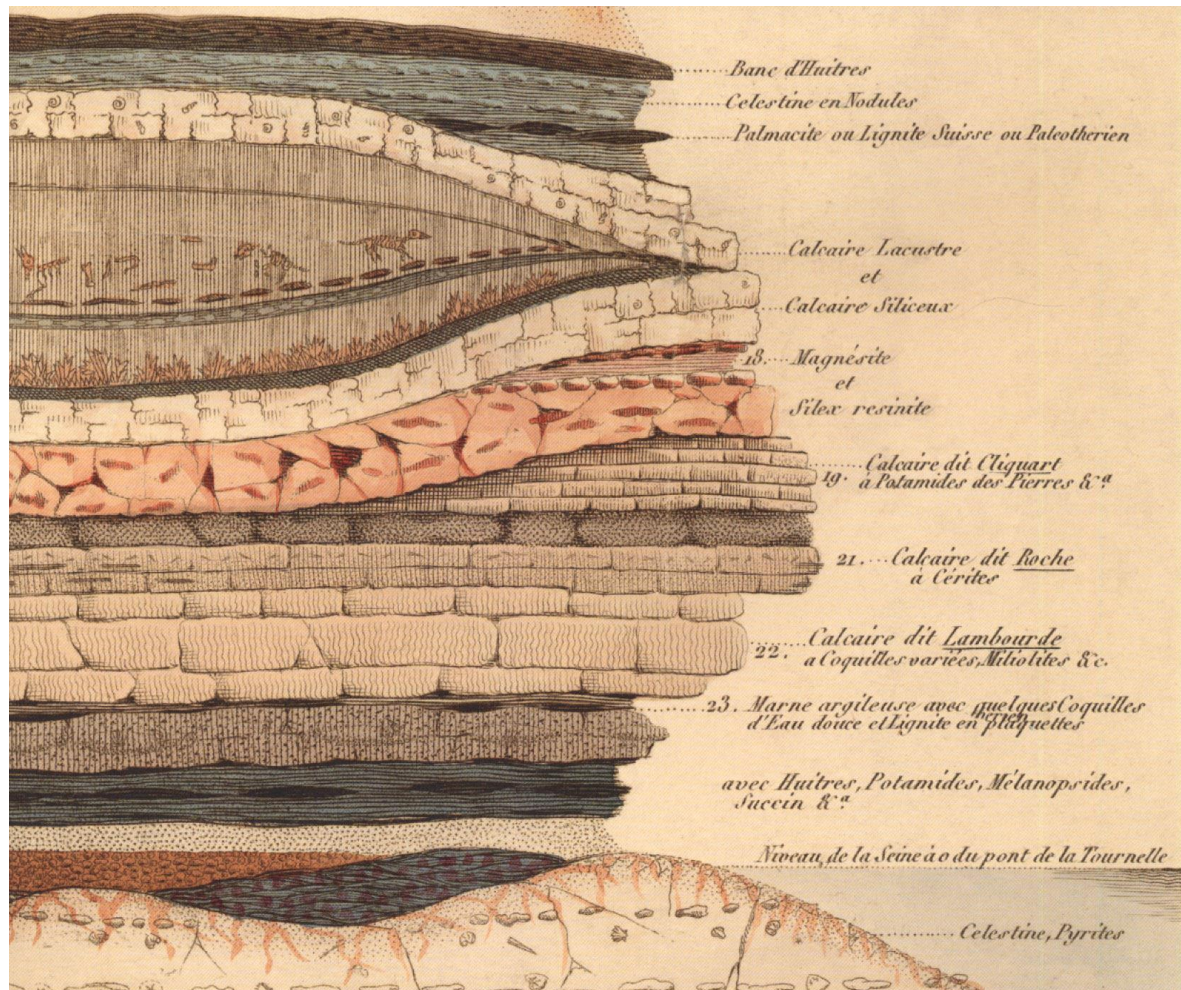 Banc d'Huitres
Celestine en Nodules
Palmacite ou Lignite Suisse ou Paleotherien
Calcaire Lacustre
et
Calcaire Siliceux
18. Magnésite
et
Silex resinite
Calcaire dit Cliquart
19. à Potamides des Pierres &ª
21. Calcaire dit Roche
à Cérites
Calcaire dit Lambourde
22. a Coquilles variées, Miliolites &c.
23. Marne argileuse avec quelques Coquilles
d'Eau douce et Lignite en plaquettes
avec Huitres, Potamides, Mélanopsides,
Succin &ª
Niveau de la Seine à 0 du pont de la Tournelle
Celestine, Pyrites